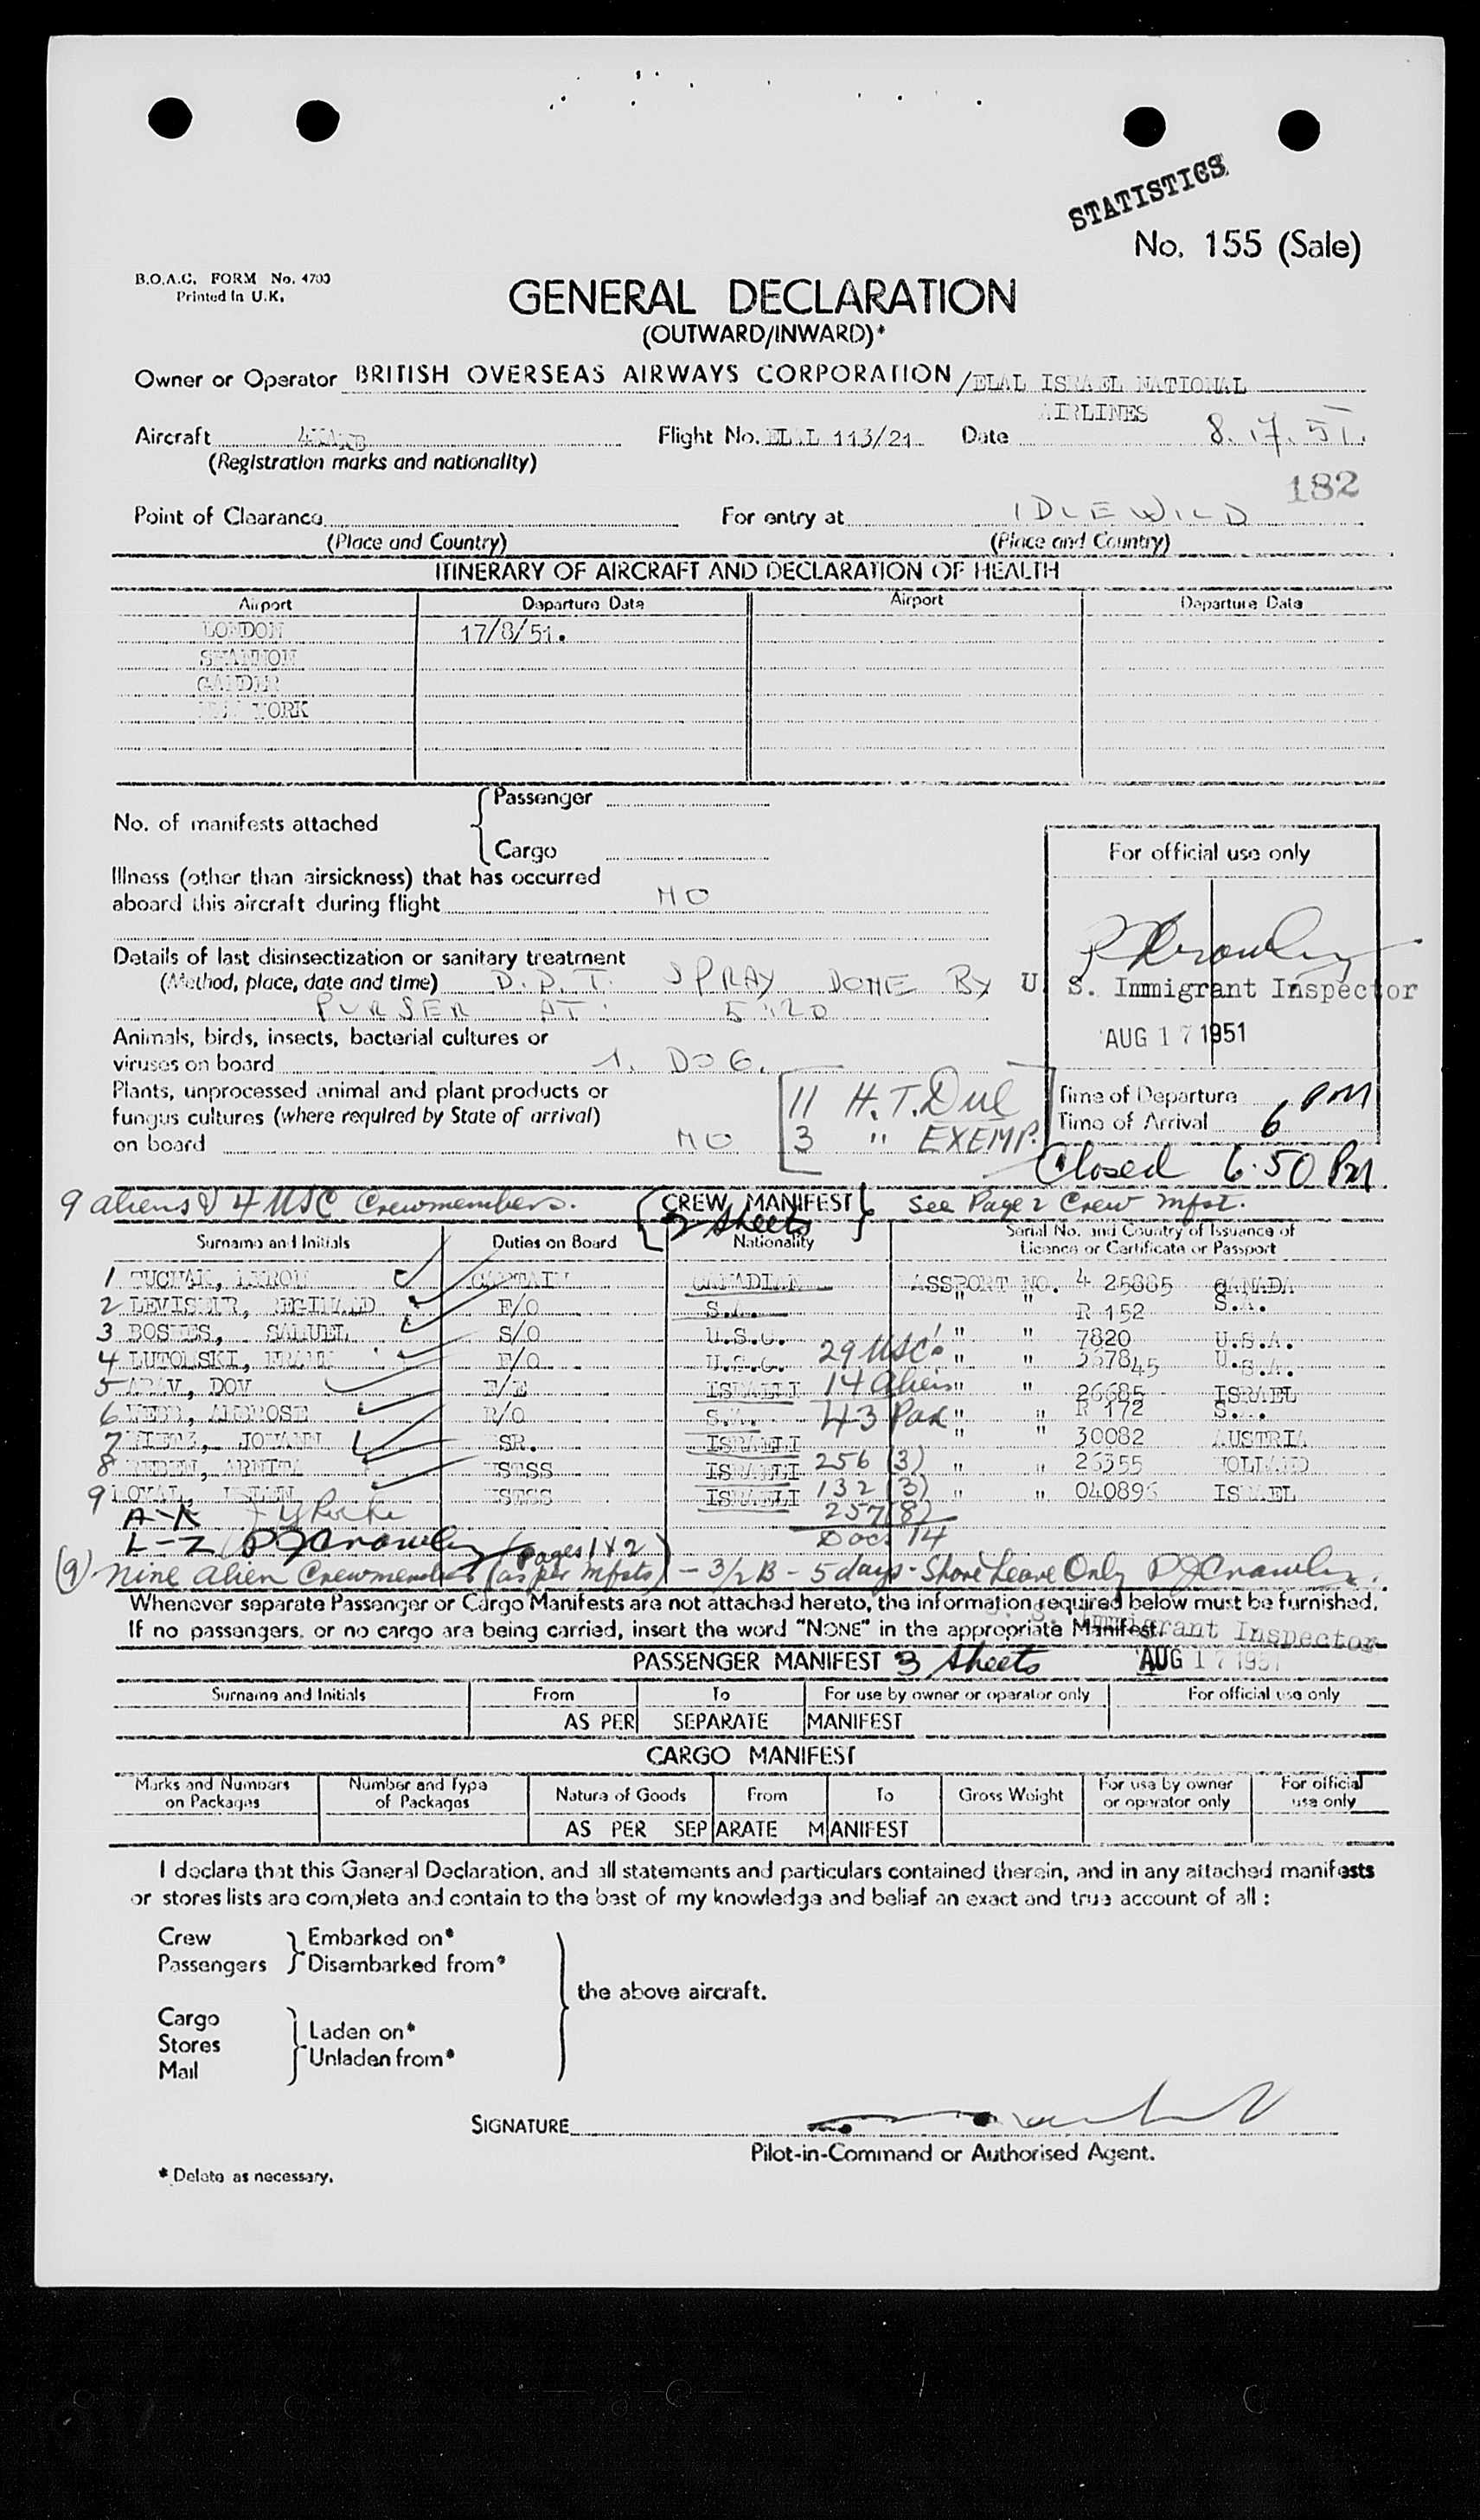 STATISTICS
No. 155 (Sale)
B.O.A.C. FORM No. 4703
Printed in U.K.
GENERAL DECLARATION
(OUTWARD/INWARD)*
Owner or Operator BRITISH OVERSEAS AIRWAYS CORPORATION /ELAL ISRAEL NATIONAL
AIRLINES
Aircraft Flight No. ELAL 113/21 Date 8.17.51.
(Registration marks and nationality)
182
Point of Clearance For entry at IDLEWILD
(Place and Country) (Place and Country)
ITINERARY OF AIRCRAFT AND DECLARATION OF HEALTH
Airport Departure Date Airport Departure Date
LONDON 17/8/51.
SHANNON
GANDER
NEW YORK
No. of manifests attached
Passenger
Cargo
For official use only
Illness (other than airsickness) that has occurred
aboard this aircraft during flight NO
Details of last disinsectization or sanitary treatment
(Method, place, date and time) D.D.T. SPRAY DONE BY
PURSER AT: 5:20
U. S. Immigrant Inspector
AUG 17 1951
Animals, birds, insects, bacterial cultures or
viruses on board 1. DOG.
Plants, unprocessed animal and plant products or
fungus cultures (where required by State of arrival)
on board NO
11 H.T. Due
3 " EXEMP.
Time of Departure PM
Time of Arrival 6
Closed 6.50 PM
9 aliens & 4 USC Crewmembers. CREW MANIFEST See Page 2 Crew Mfst.
2 sheets
Surname and Initials Duties on Board Nationality Serial No. and Country of Issuance of
Licence or Certificate or Passport
1 CAPTAIN CANADIAN PASSPORT NO. 4 25885 CANADA
2 REGINALD F/O S.A. " " R 152 S.A.
3 SAMUEL S/O U.S.C. " " 7820 U.S.A.
4 LUTOLSKI, FRANK F/O U.S.C. 29 USC " " U.S.A.
5 ARAV, DOV F/E ISRAELI 14 Aliens " " 26685 ISRAEL
6 WEBB, AMBROSE R/O S.A. 43 Pax " " R 172 S.A.
7 JOHANN SR. ISRAELI " " 30082 AUSTRIA
8 STSS ISRAELI 256 (3) " " 26355 HOLLAND
9 STSS ISRAELI 132 (3) " " 040896 ISRAEL
A-K 257(8)
L-Z P J Crowley (Pages 1 & 2) Doc. 14
(9) Nine alien Crewmembers (as per Mfsts) - 3/2 B - 5 days - Shore Leave Only P J Crowley.
Whenever separate Passenger or Cargo Manifests are not attached hereto, the information required below must be furnished.
If no passengers, or no cargo are being carried, insert the word "NONE" in the appropriate Manifest.
U. S. Immigrant Inspector
PASSENGER MANIFEST 3 sheets AUG 17 1951
Surname and Initials From To For use by owner or operator only For official use only
AS PER SEPARATE MANIFEST
CARGO MANIFEST
Marks and Numbers on Packages Number and Type of Packages Nature of Goods From To Gross Weight For use by owner or operator only For official use only
AS PER SEPARATE MANIFEST
I declare that this General Declaration, and all statements and particulars contained therein, and in any attached manifests
or stores lists are complete and contain to the best of my knowledge and belief an exact and true account of all :
Crew Embarked on*
Passengers Disembarked from*
the above aircraft.
Cargo
Stores Laden on*
Mail Unladen from*
SIGNATURE
Pilot-in-Command or Authorised Agent.
* Delete as necessary.